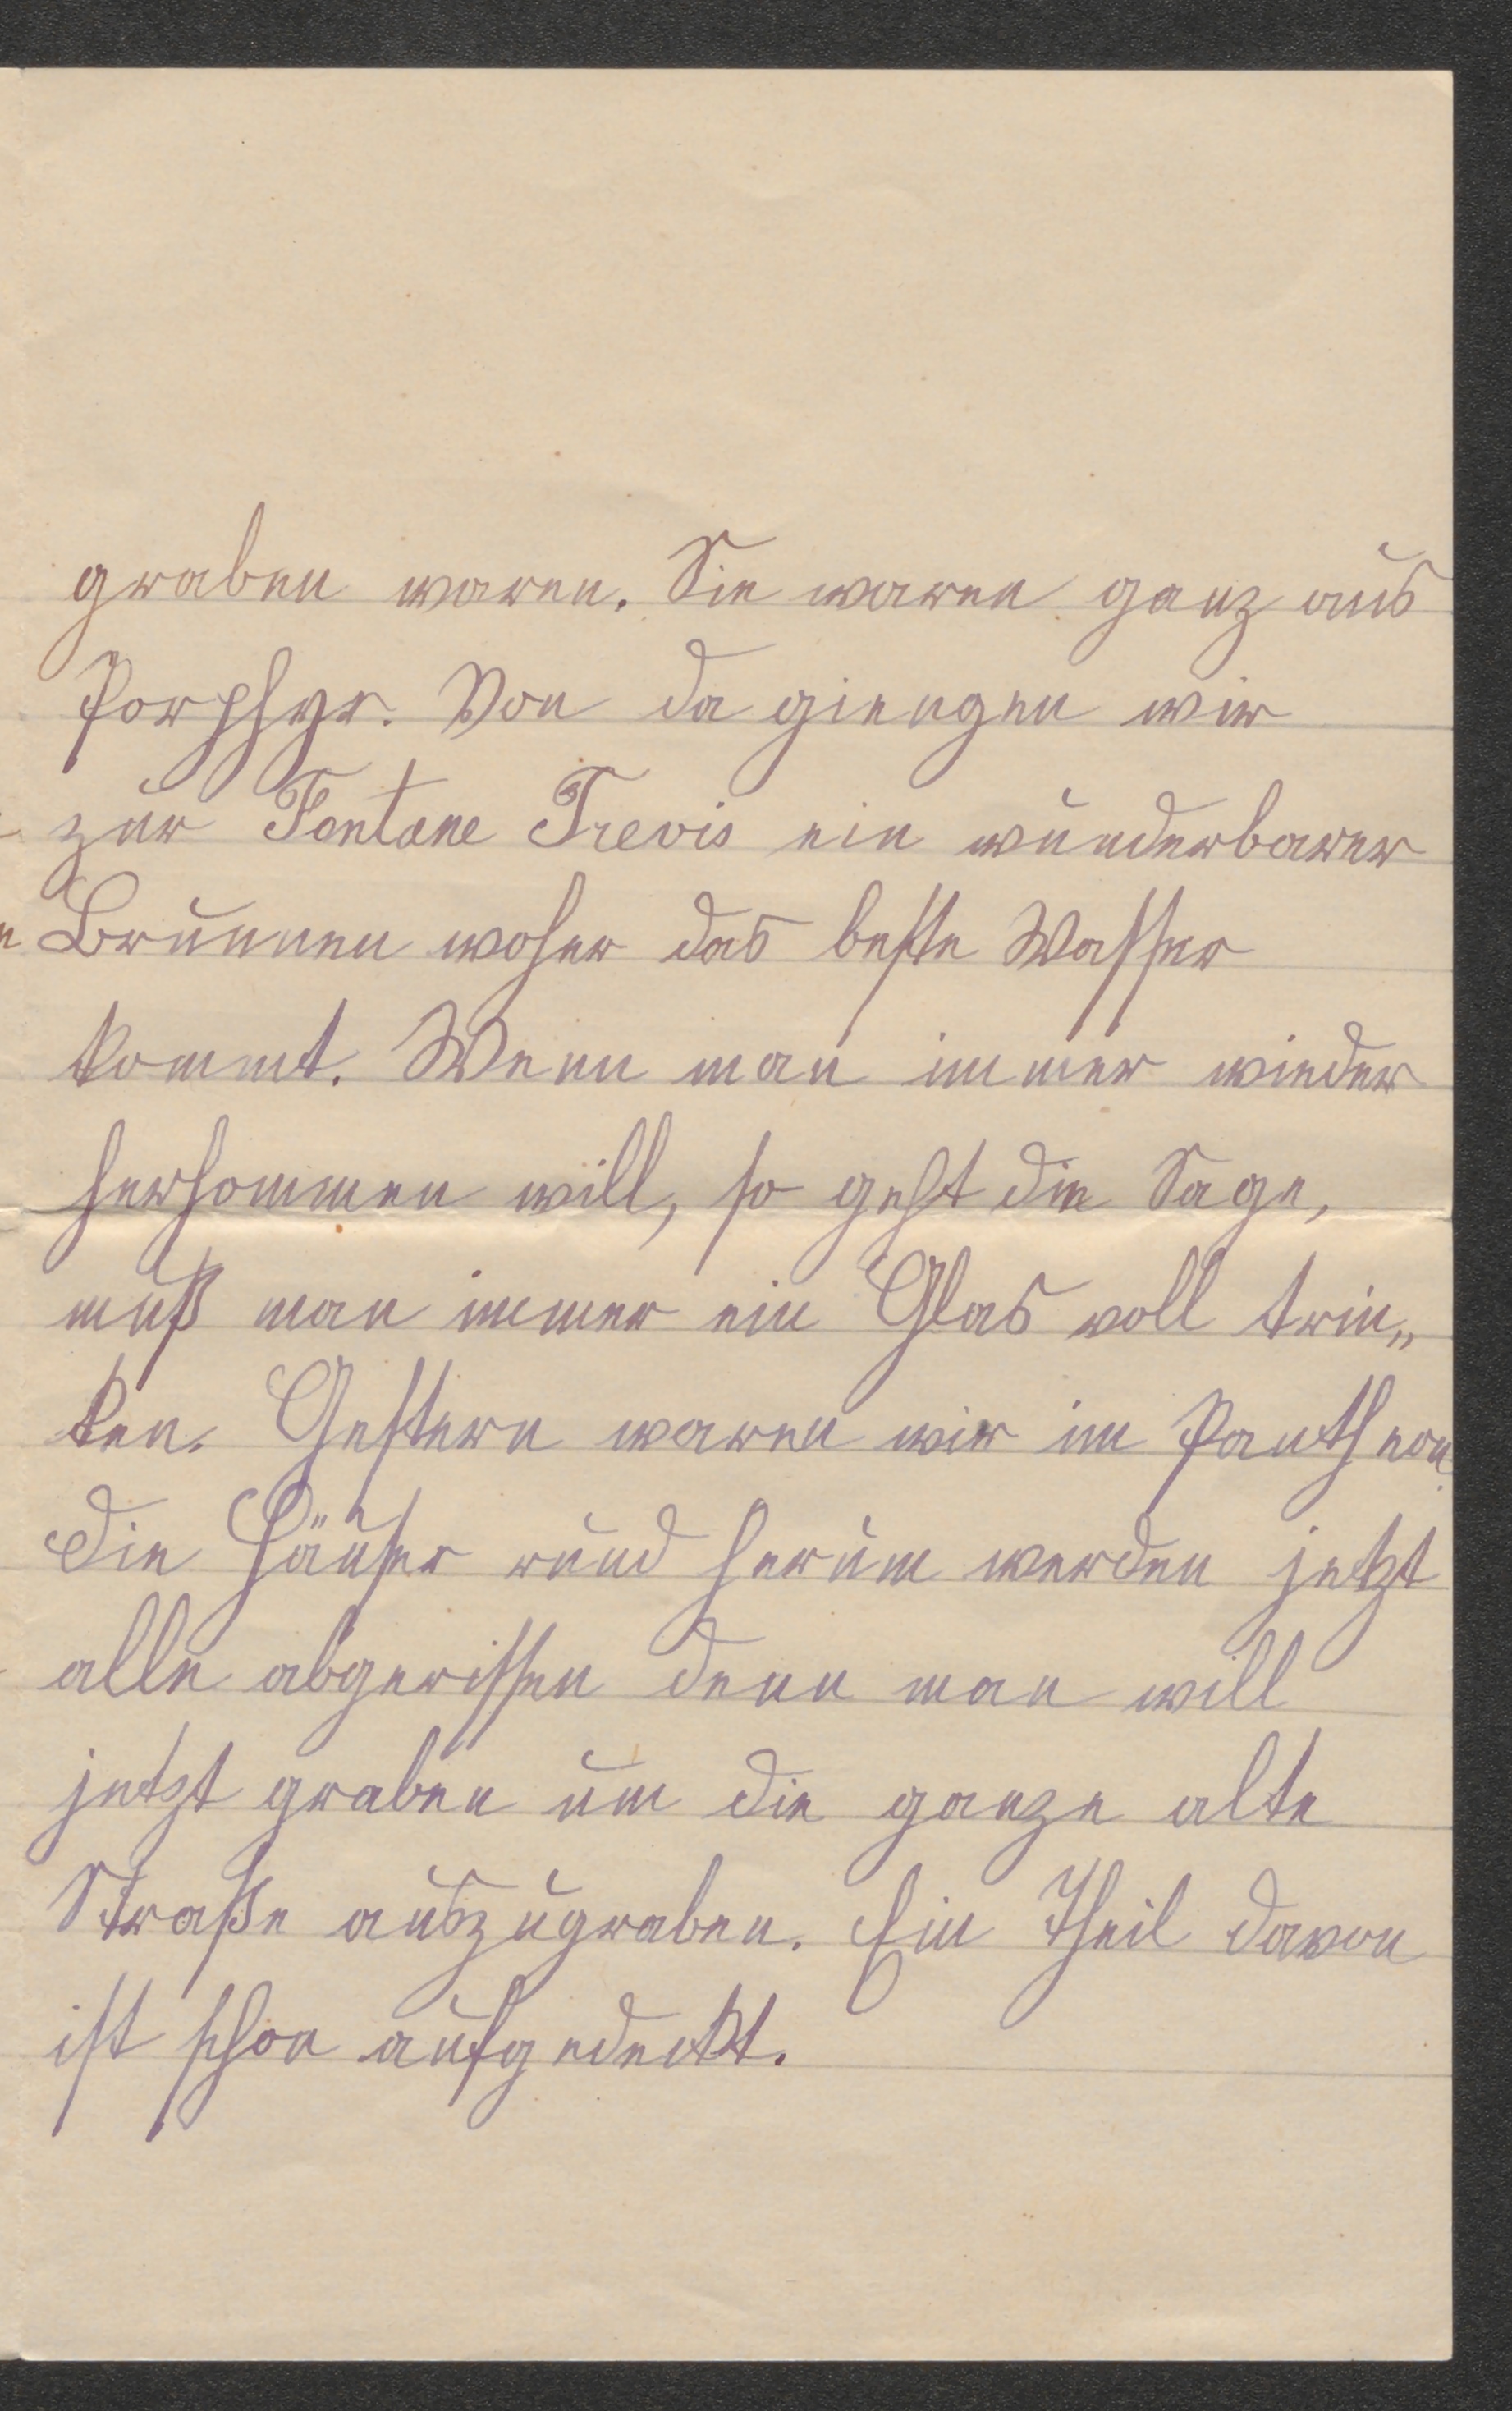 graben waren. Sie waren ganz aus
Porphyr. Von da giengen wir
zur Fontane Trevis ein wunderbarer
Brunnen woher das beste Wasser
kommt. Wenn man immer wieder
herhommen will, so geht die Sage,
muß man immer ein Glas voll trin„
ken. Gestern waren wir im Pantheon
die Häuser rund herum werden jetzt
alle abgerissen denn man will
jetzt graben um die ganze alte
Straße auszugraben. Ein Theil davon
ist schon aufgedeckt.